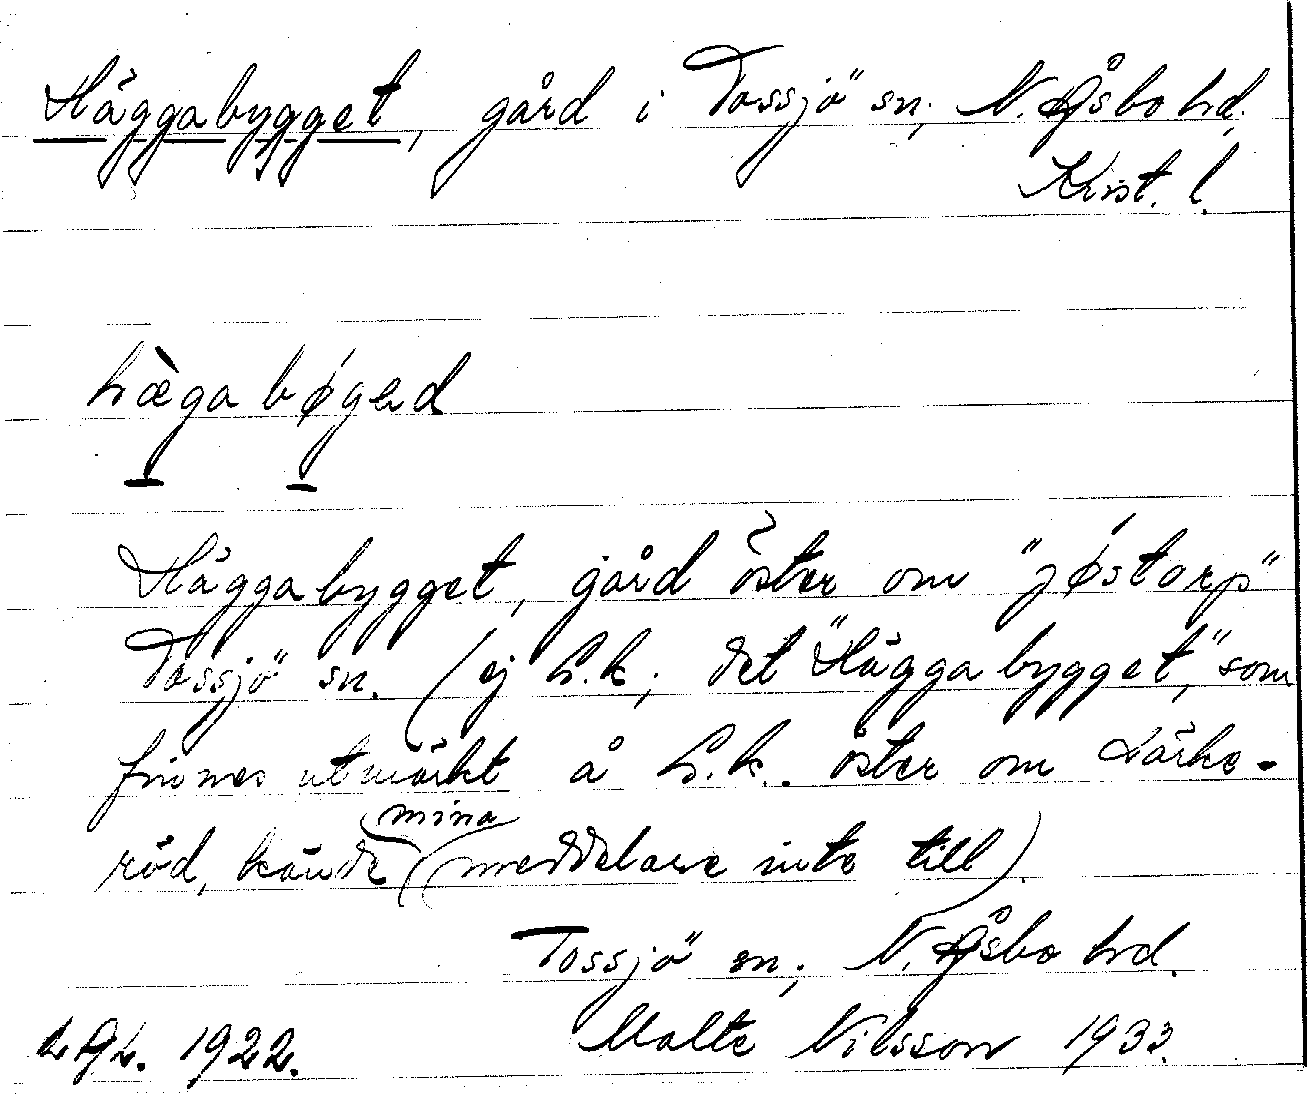 Häggabygget, gård i Tossjö sn, N. Åsbo hd.
Krist. l.
hæga bøgad
Häggabygget, gård öster om "jøstorp"
Tossjö sn. (ej G.k, det "Häggabygget", som
finnes utmärkt å G.k. öster om Lärke-
röd, kände mina meddelare inte till).
Tossjö sn, N. Åsbo hd.
1922. Malte Nilsson 1933.